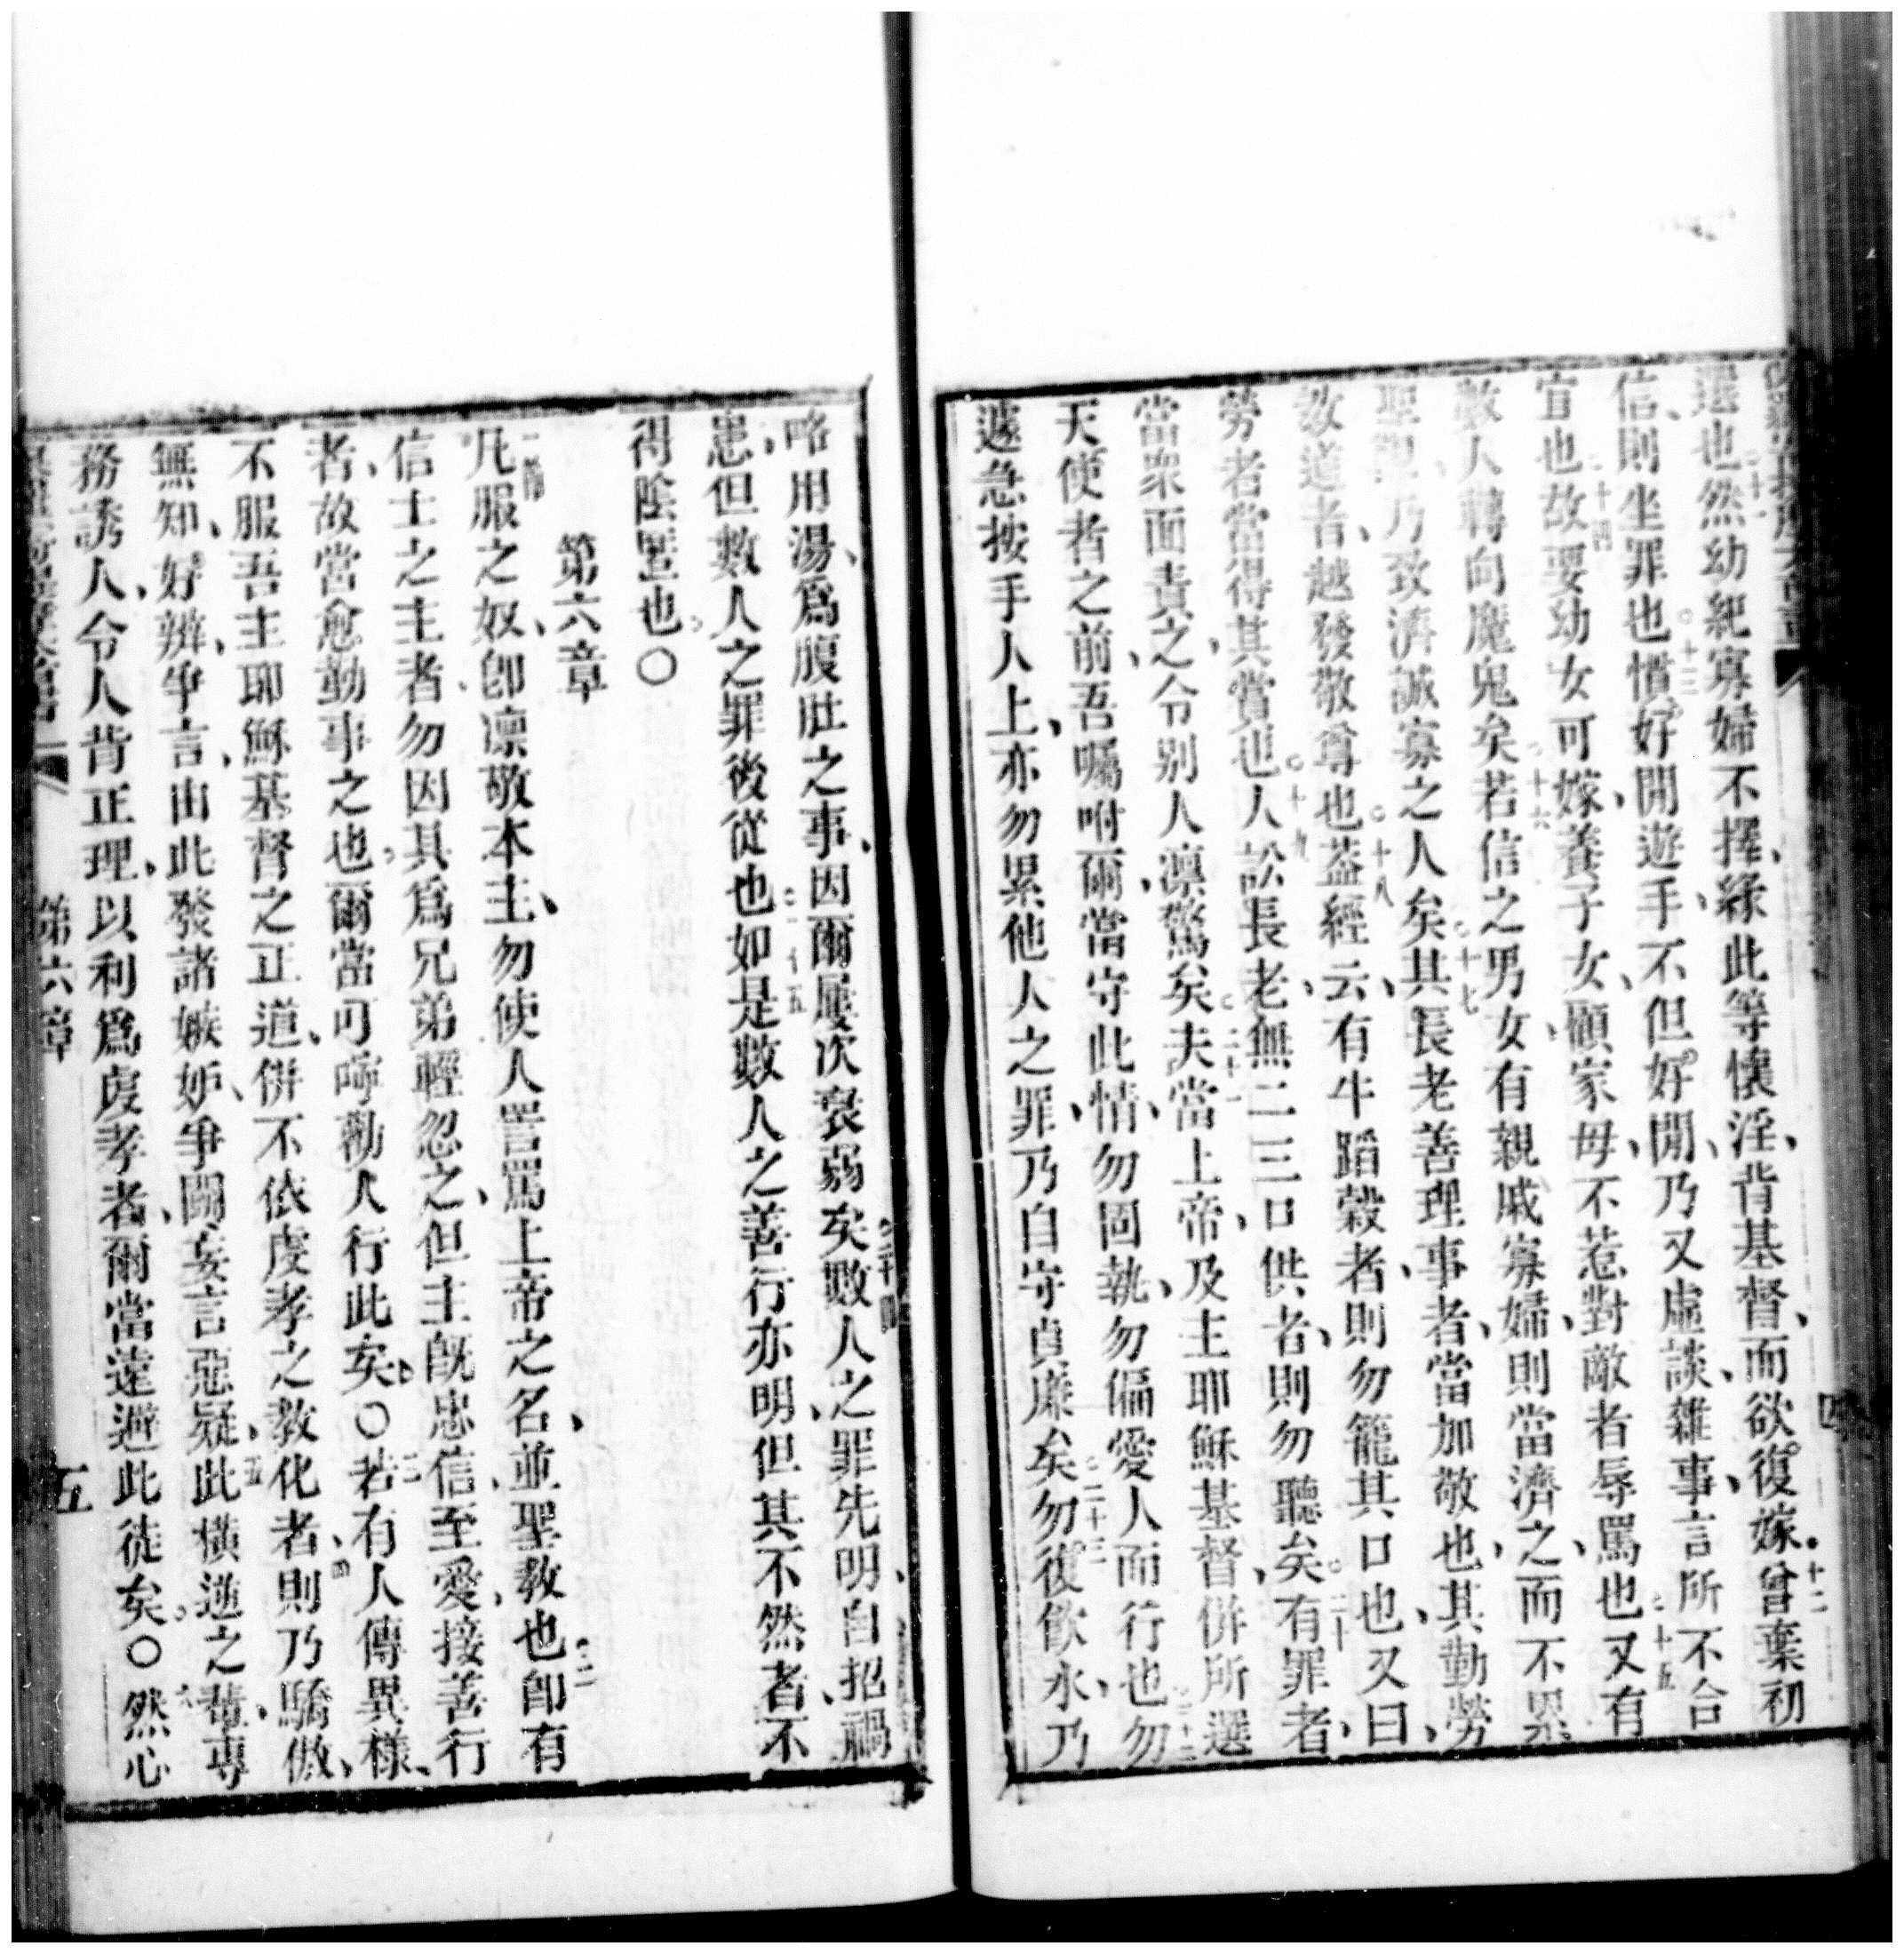 選也十一然幼紀寡婦不擇、緣此等懷淫、背基督、而欲復嫁。十二曾棄初
信、則坐罪也。十三慣好閒遊手、不但好閒、乃又虛談、雜事、言所不合
宜也。十四故要幼女可嫁、養子女、顧家毋、不惹對敵者辱罵也。十五又有
數人轉向魔鬼矣。十六若信之男女、有親戚寡婦、則當濟之、而不累
聖會、乃致濟誠寡之人矣。十七其長老善理事者、當加敬也、其勤勞
教道者、越發敬尊也。十八蓋經云、有牛蹈穀者、則勿籠其口也、又曰、
勞者當得其賞也。十九人訟長老、無二三口供者、則勿聽矣。二十有罪者、
當眾面責之、令别人凛驚矣。二十一夫當上帝、及主耶穌基督、併所選
天使者之前、吾囑咐爾、當守此情、勿固執、勿偏愛人而行也。二十二勿
遽急按手人上、亦勿累他人之罪、乃自守貞廉矣。二十三勿復飲水、乃
四
略用湯、爲腹肚之事、因爾屢次衰弱矣。二十四節數人之罪先明、自招禍
患、但數人之罪後從也。二十五如是數人之善行亦明、但其不然者、不
得陰匿也。〇
第六章
一節凡服之奴、卽凛敬本主、勿使人詈罵上帝之名、並聖敎也。二卽有
信士之主者、勿因其爲兄弟輕忽之、但主旣忠信至愛、接善行
者、故當愈勤事之也。爾當可啼勸人行此矣。〇三若有人傳異樣、
不服吾主耶穌基督之正道、併不依虔孝之教化者、四則乃驕傲、
無知、好辨、爭言、由此發諸嫉妒、爭鬬、妄言、惡疑、五此橫逆之輩、專
務誘人、令人背正理、以利爲虔孝者、爾當遠避此徒矣。〇六然心
第六章
五